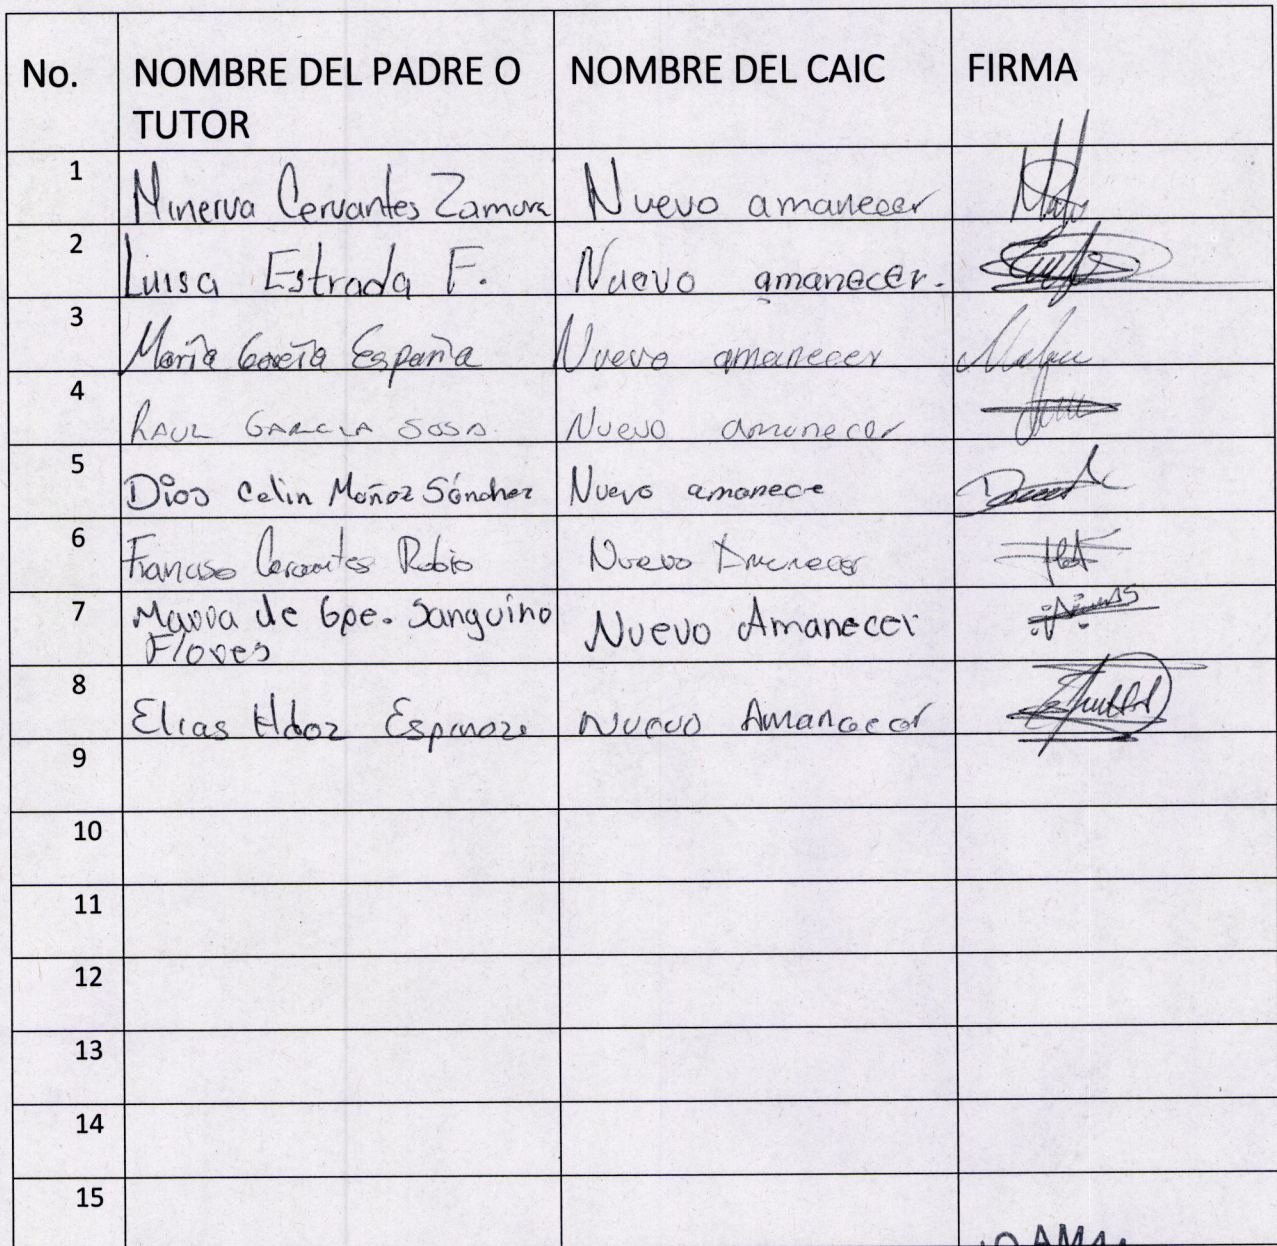 No. NOMBRE DEL PADRE O TUTOR NOMBRE DEL CAIC FIRMA
1 Minerva Cervantes Zamora Nuevo amanecer
2 Luisa Estrada F. Nuevo amanecer.
3 María García España Nuevo amanecer
4 RAUL GARCIA SOSA Nuevo amanecer
5 Dios Celin Muñoz Sánchez Nuevo amanece
6 Francisco Cervantes Rubio Nuevo Amanecer
7 Maria de Gpe. Sanguino Nuevo Amanecer
Flores
8 Elias Hdoz Espinoza Nuevo Amanecer
9
10
11
12
13
14
15